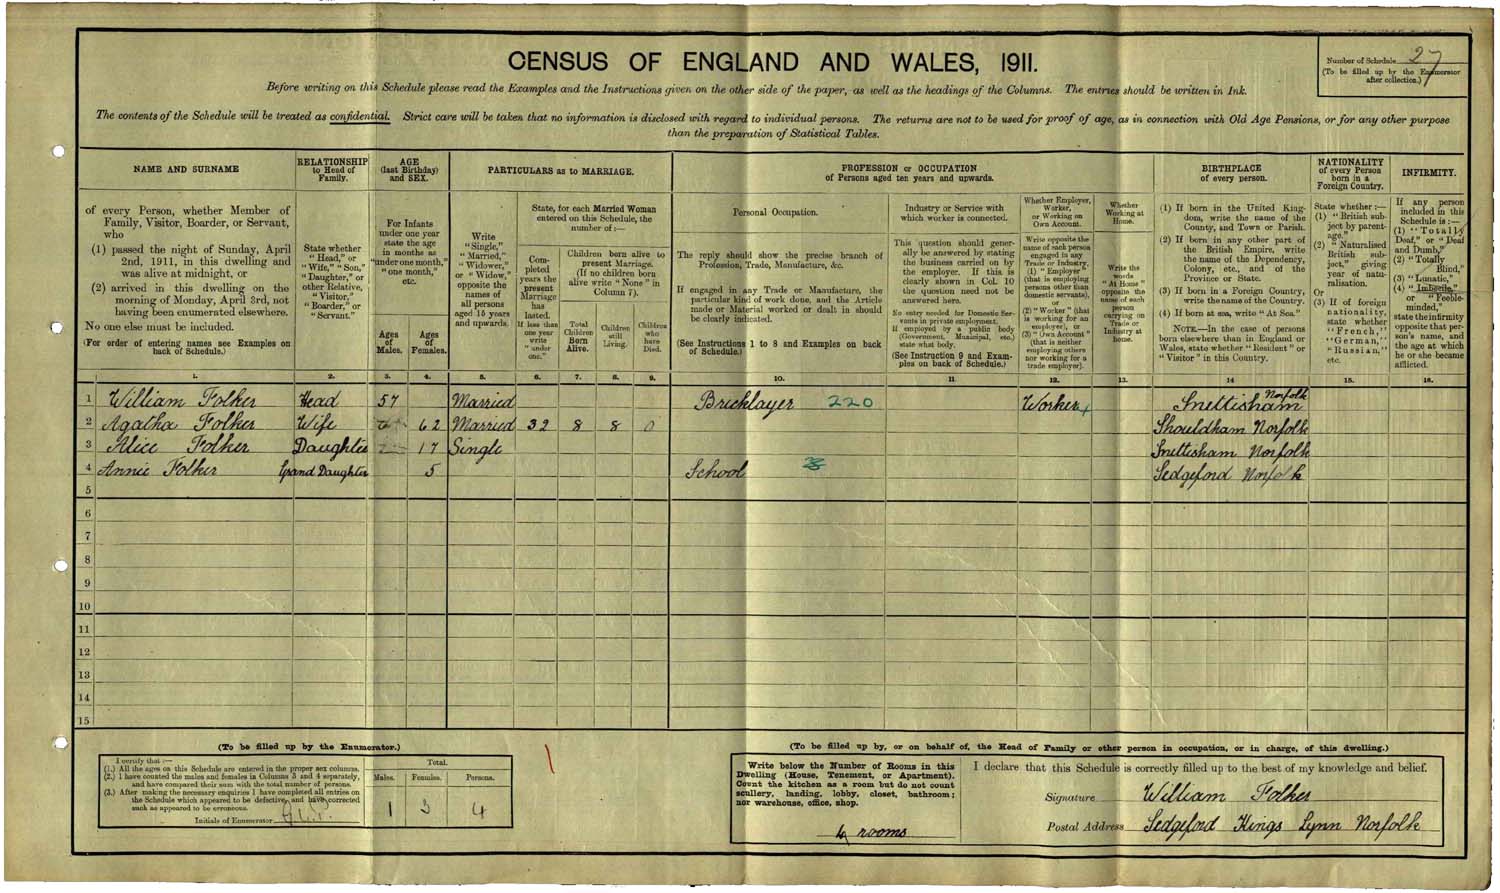 CENSUS OF ENGLAND AND WALES, 1911.
Number of Schedule 27
(To be filled up by the Enumerator
after collection.)
Before writing on this Schedule please read the Examples and the Instructions given on the other side of the paper, as well as the headings of the Columns. The entries should be written in Ink.
The contents of the Schedule will be treated as confidential. Strict care will be taken that no information is disclosed with regard to individual persons. The returns are not to be used for proof of age, as in connection with Old Age Pensions, or for any other purpose
than the preparation of Statistical Tables.
NAME AND SURNAME
of every Person, whether Member of
Family, Visitor, Boarder, or Servant,
who
(1) passed the night of Sunday, April
2nd, 1911, in this dwelling and
was alive at midnight, or
(2) arrived in this dwelling on the
morning of Monday, April 3rd, not
having been enumerated elsewhere.
No one else must be included.
(For order of entering names see Examples on
back of Schedule.)
RELATIONSHIP
to Head of
Family.
State whether
"Head," or
"Wife," "Son,"
"Daughter," or
other Relative,
"Visitor,"
"Boarder," or
"Servant."
AGE
(last Birthday)
and SEX.
For Infants
under one
year state
the age
in months as
"under one month,"
"one month,"
etc.
Ages
of
Males.
Ages
of
Females.
PARTICULARS as to MARRIAGE.
Write
"Single,"
"Married,"
"Widower,"
or "Widow,"
opposite the
names of
all persons
aged 15 years
and upwards.
State, for each Married Woman
entered on this Schedule, the
number of :—
Com-
pleted
years the
present
Marriage
has
lasted.
If less than
one year
write
"under
one."
Children born alive to
present Marriage.
(If no children born
alive write "None" in
Column 7).
Total
Children
Born
Alive.
Children
still
Living.
Children
who
have
Died.
PROFESSION or OCCUPATION
of Persons aged ten years and upwards.
Personal Occupation.
The reply should show the precise branch of
Profession, Trade, Manufacture, &c.
If engaged in any Trade or Manufacture, the
particular kind of work done, and the Article
made or Material worked or dealt in should
be clearly indicated.
(See Instructions 1 to 8 and Examples on back
of Schedule.)
Industry or Service with
which worker is connected.
This question should gener-
ally be answered by stating
the business carried on by
the employer. If this is
clearly shown in Col. 10
the question need not be
answered here.
No entry needed for Domestic Ser-
vants in private employment.
If employed by a public body
(Government, Municipal, etc.)
state what body.
(See Instruction 9 and Exam-
ples on back of Schedule.)
Whether Employer,
Worker,
or Working on
Own Account.
Write opposite the
name of each person
engaged in any
Trade or Industry,
(1) "Employer"
(that is employing
persons other than
domestic servants),
or
(2) "Worker" (that
is working for an
employer), or
(3) "Own Account"
(that is neither
employing others
nor working for a
trade employer).
Whether
Working at
Home.
Write the
words
"At Home"
opposite the
name of each
person
carrying on
Trade or
Industry at
home.
BIRTHPLACE
of every person.
(1) If born in the United King-
dom, write the name of the
County, and Town or Parish.
(2) If born in any other part of
the British Empire, write
the name of the Dependency,
Colony, etc., and of the
Province or State.
(3) If born in a Foreign Country,
write the name of the Country.
(4) If born at sea, write "At Sea."
NOTE.—In the case of persons
born elsewhere than in England or
Wales, state whether "Resident" or
"Visitor" in this Country.
NATIONALITY
of every Person
born in a
Foreign Country.
State whether :—
(1) "British sub-
ject by parent-
age."
(2) "Naturalised
British sub-
ject," giving
year of natu-
ralisation.
Or
(3) If of foreign
nationality,
state whether
"French,"
"German,"
"Russian,"
etc.
INFIRMITY.
If any person
included in this
Schedule is :—
(1) "Totally
Deaf," or "Deaf
and Dumb,"
(2) "Totally
Blind,"
(3) "Lunatic,"
(4) "Imbecile,"
or "Feeble-
minded,"
state the infirmity
opposite that per-
son's name, and
the age at which
he or she became
afflicted.
1. 2. 3. 4. 5. 6. 7. 8. 9. 10. 11. 12. 13. 14 15. 16.
1 William Folker Head 57 Married Bricklayer 220 Worker Snettisham Norfolk
2 Agatha Folker Wife 62 Married 32 8 8 0 Shouldham Norfolk
3 Alice Folker Daughter 17 Single Snettisham Norfolk
4 Annie Folker Grand Daughter 5 School Sedgeford Norfolk
5
6
7
8
9
10
11
12
13
14
15
(To be filled up by the Enumerator.)
I certify that :—
(1.) All the ages on this Schedule are entered in the proper sex columns.
(2.) I have counted the males and females in Columns 3 and 4 separately,
and have compared their sum with the total number of persons.
(3.) After making the necessary enquiries I have completed all entries on
the Schedule which appeared to be defective, and have corrected
such as appeared to be erroneous.
Initials of Enumerator
Total.
Males. Females. Persons.
1 3 4
(To be filled up by, or on behalf of, the Head of Family or other person in occupation, or in charge, of this dwelling.)
Write below the Number of Rooms in this
Dwelling (House, Tenement, or Apartment).
Count the kitchen as a room but do not count
scullery, landing, lobby, closet, bathroom ;
nor warehouse, office, shop.
4 rooms
I declare that this Schedule is correctly filled up to the best of my knowledge and belief.
Signature William Folker
Postal Address Sedgeford Kings Lynn Norfolk